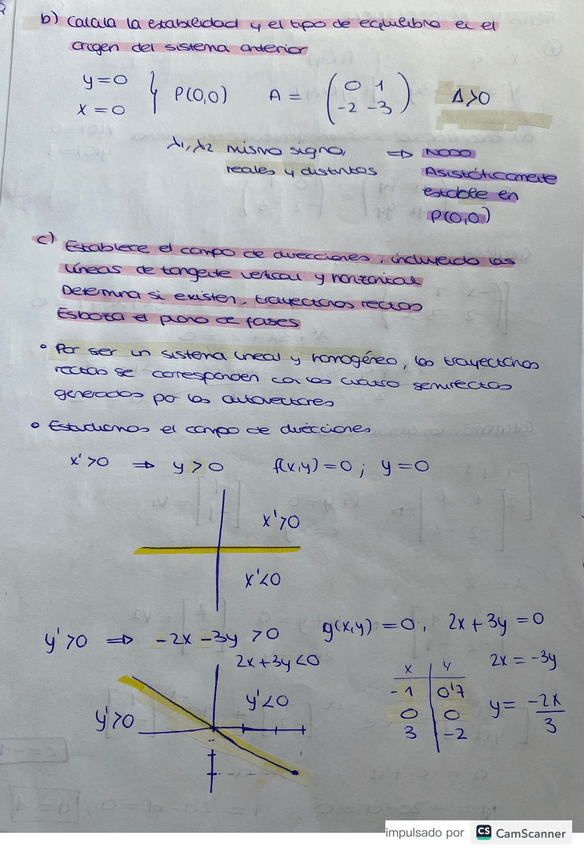 b) Calcula la estabilidad y el tipo de equilibrio en el
origen del sistema anterior
y=0
x=0
P(0,0)
A = ( 0 1
-2 -3 )
Δ>0
λ1, λ2 mismo signo,
reales y distintos
=> NODO
Asistóticamente
estable en
P(0,0)
c) Establece el campo de direcciones, incluyendo las
líneas de tangente vertical y horizontal
Determina si existen, trayectorias rectas
Esboza el plano de fases
• Por ser un sistema lineal y homogéneo, las trayectorias
rectas se corresponden con las cuatro semirectas
generadas por los autovectores
• Estudiamos el campo de direcciones
x'>0 => y>0 f(x,y)=0; y=0
x'>0
x'<0
y'>0 => -2x-3y>0 g(x,y)=0, 2x+3y=0
2x+3y<0
x y
2x=-3y
-1 0'7
y'>0
y'<0
0 0
y= -2x/3
3 -2
impulsado por CS CamScanner